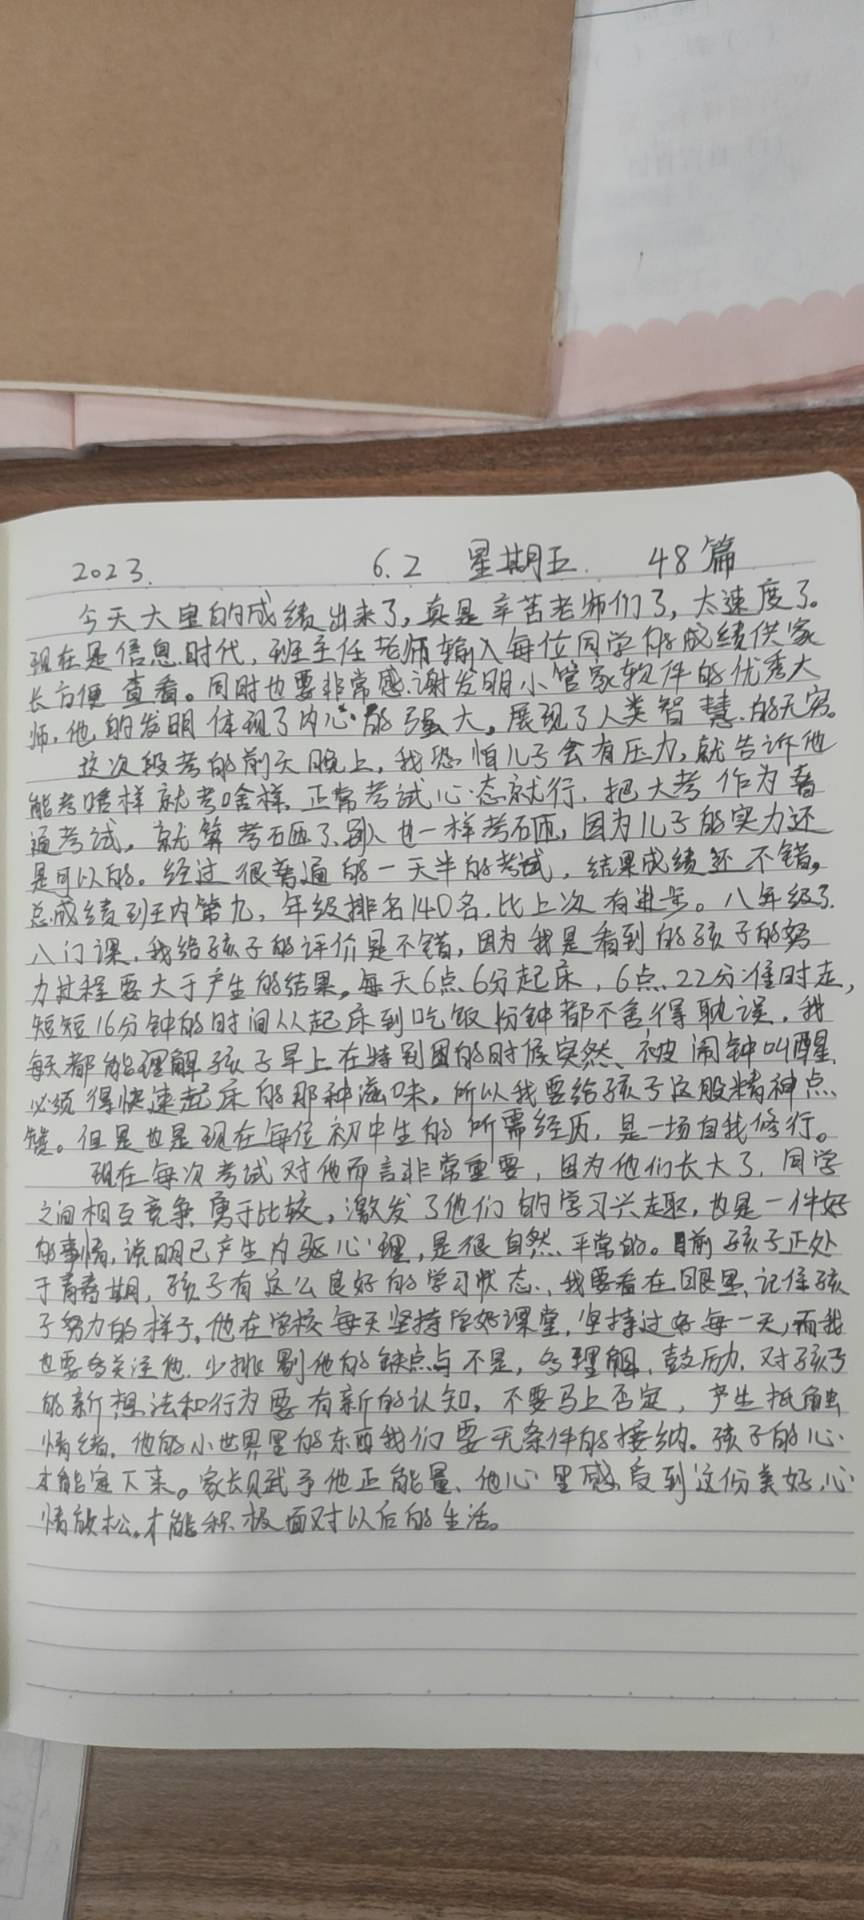 2023. 6.2 星期五. 48篇
今天大皇的成绩出来了,真是辛苦老师们了,太速度了。
现在是信息时代,班主任老师输入每位同学的成绩供家
长方便查看。同时也要非常感谢发明小管家软件的优秀大
师,他的发明体现了内心的强大。展现了人类智慧的无穷。
这次段考的前天晚上,我恐怕儿子会有压力,就告诉他
能考啥样就考啥样,正常考试心态就行,把大考作为普
通考试。就算考砸了,别人也一样考砸,因为儿子的实力还
是可以的。经过很普通的一天半的考试,结果成绩还不错。
总成绩到班内第九,年级排名140名,比上次有进步。八年级了
八门课,我给孩子的评价是不错,因为我是看到的孩子的努
力过程要大于产生的结果。每天6点6分起床,6点22分准时走,
短短16分钟的时间从起床到吃饭份钟都不舍得耽误,我
每天都能理解孩子早上在特别困的时候突然被闹钟叫醒
必须得快速起床的那种滋味。所以我要给孩子这股精神点
赞。但是也是现在每位初中生的所需经历,是一场自我修行。
现在每次考试对他而言非常重要,因为他们长大了,同学
之间相互竞争,勇于比较,激发了他们的学习兴趣,也是一件好
的事情,说明已产生内驱心理,是很自然、平常的。目前孩子正处
于青春期,孩子有这么良好的学习状态,我要看在眼里,记住孩
子努力的样子。他在学校每天坚持学好课堂,坚持过好每一天,而我
也要多关注他,少排剔他的缺点与不是,多理解,鼓励,对孩子
的新想法和行为要有新的认知,不要马上否定,产生抵触
情绪,他的小世界里的东西我们要无条件的接纳。孩子的心
才能定下来。家长赋予他正能量,他心里感受到这份美好,心
情放松,才能积极面对以后的生活。